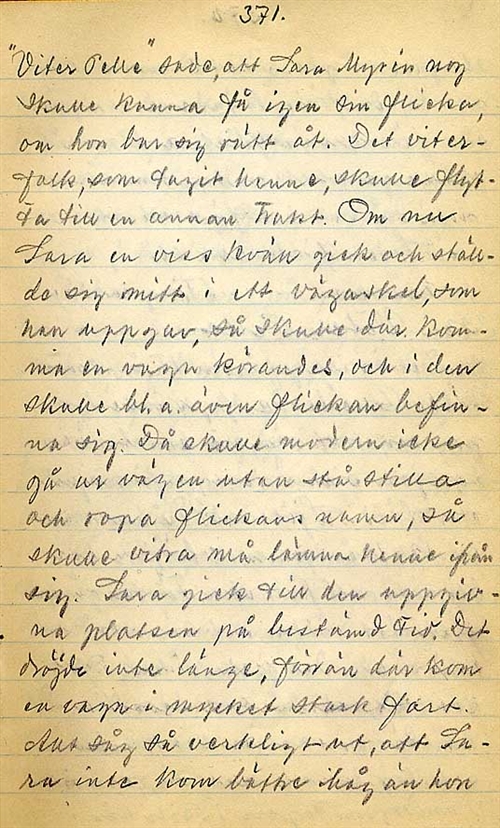 371.
"Viter Pelle" sade, att Sara Myrén nog
skulle kunna få igen sin flicka,
om hon bar sig rätt åt. Det viter-
folk, som tagit henne, skulle flyt-
ta till en annan trakt. Om nu
Sara en viss kväll gick och ställ-
de sig mitt i ett vägaskel, som
han uppgav, så skulle där kom-
ma en vagn körandes, och i den
skulle bl. a. även flickan befin-
na sig. Då skulle modern icke
gå ur vägen utan stå stilla
och ropa flickans namn, så
skulle vitra må lämna henne ifrån
sig. Sara gick till den uppgiv-
na platsen på bestämd tid. Det
dröjde inte länge, förrän där kom
en vagn i mycket stark fart.
Allt såg så verkligt ut, att Sa-
ra inte kom bättre ihåg än hon